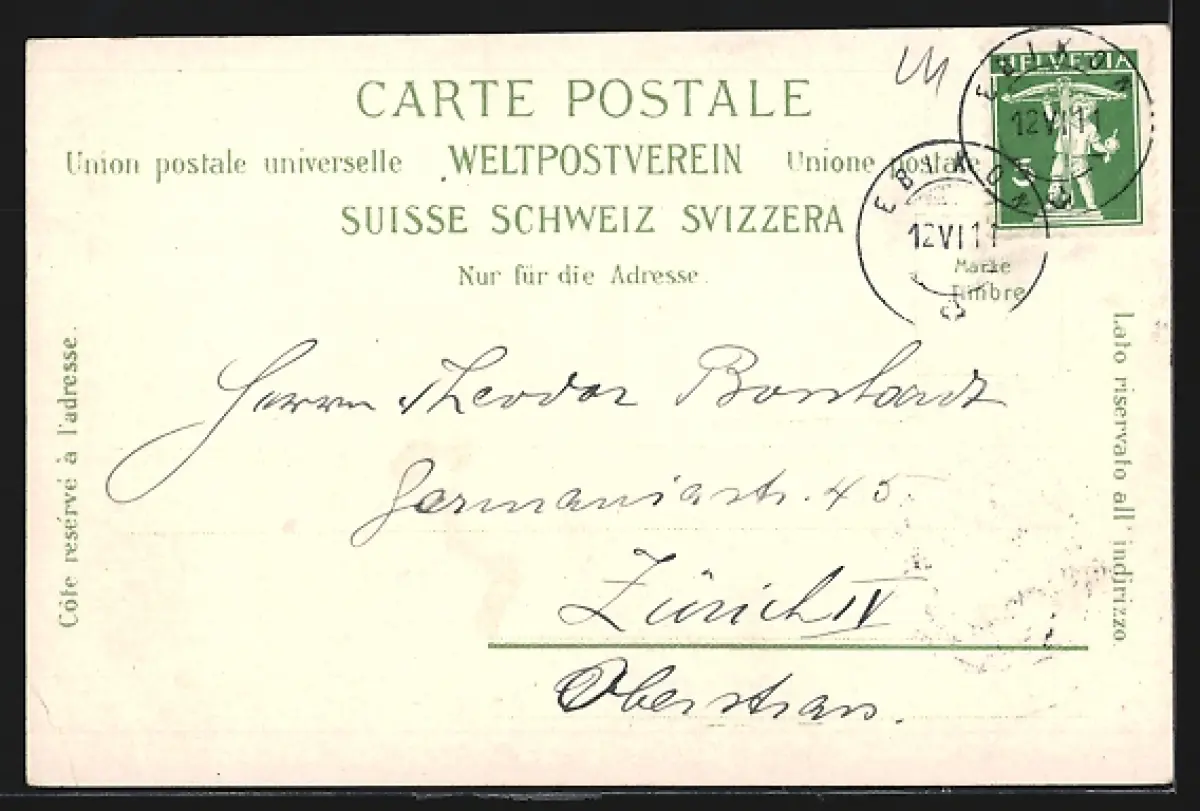 CARTE POSTALE
Union postale universelle WELTPOSTVEREIN Unione postale
SUISSE SCHWEIZ SVIZZERA
Nur für die Adresse.
HELVETIA
5
EBIKON
12 VI 11
EBIKON
12 VI 11
Marke
Timbre
Côté réservé à l'adresse.
Lato riservato all' indirizzo.
Herrn Theodor
Germaniastr. 45
Zürich IV
Oberstrass.